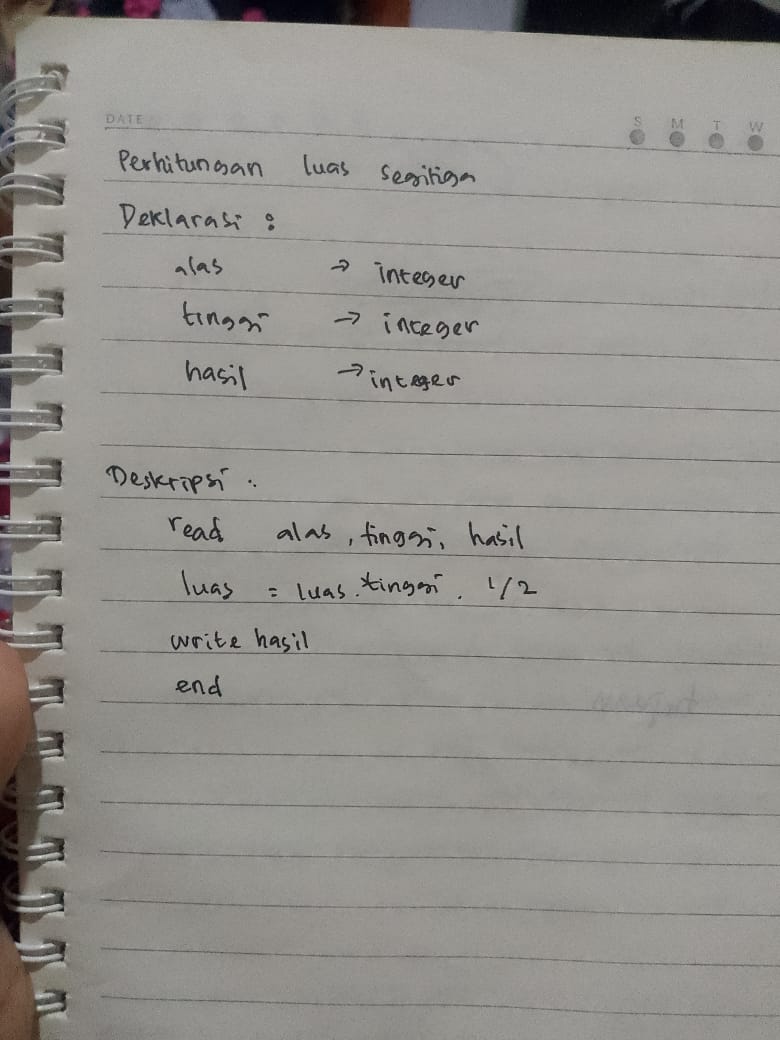 DATE
S M T W
Perhitungan luas segitiga
Deklarasi :
alas → integer
tinggi → integer
hasil → integer
Deskripsi :
read alas, tinggi, hasil
luas = luas . tinggi . 1/2
write hasil
end